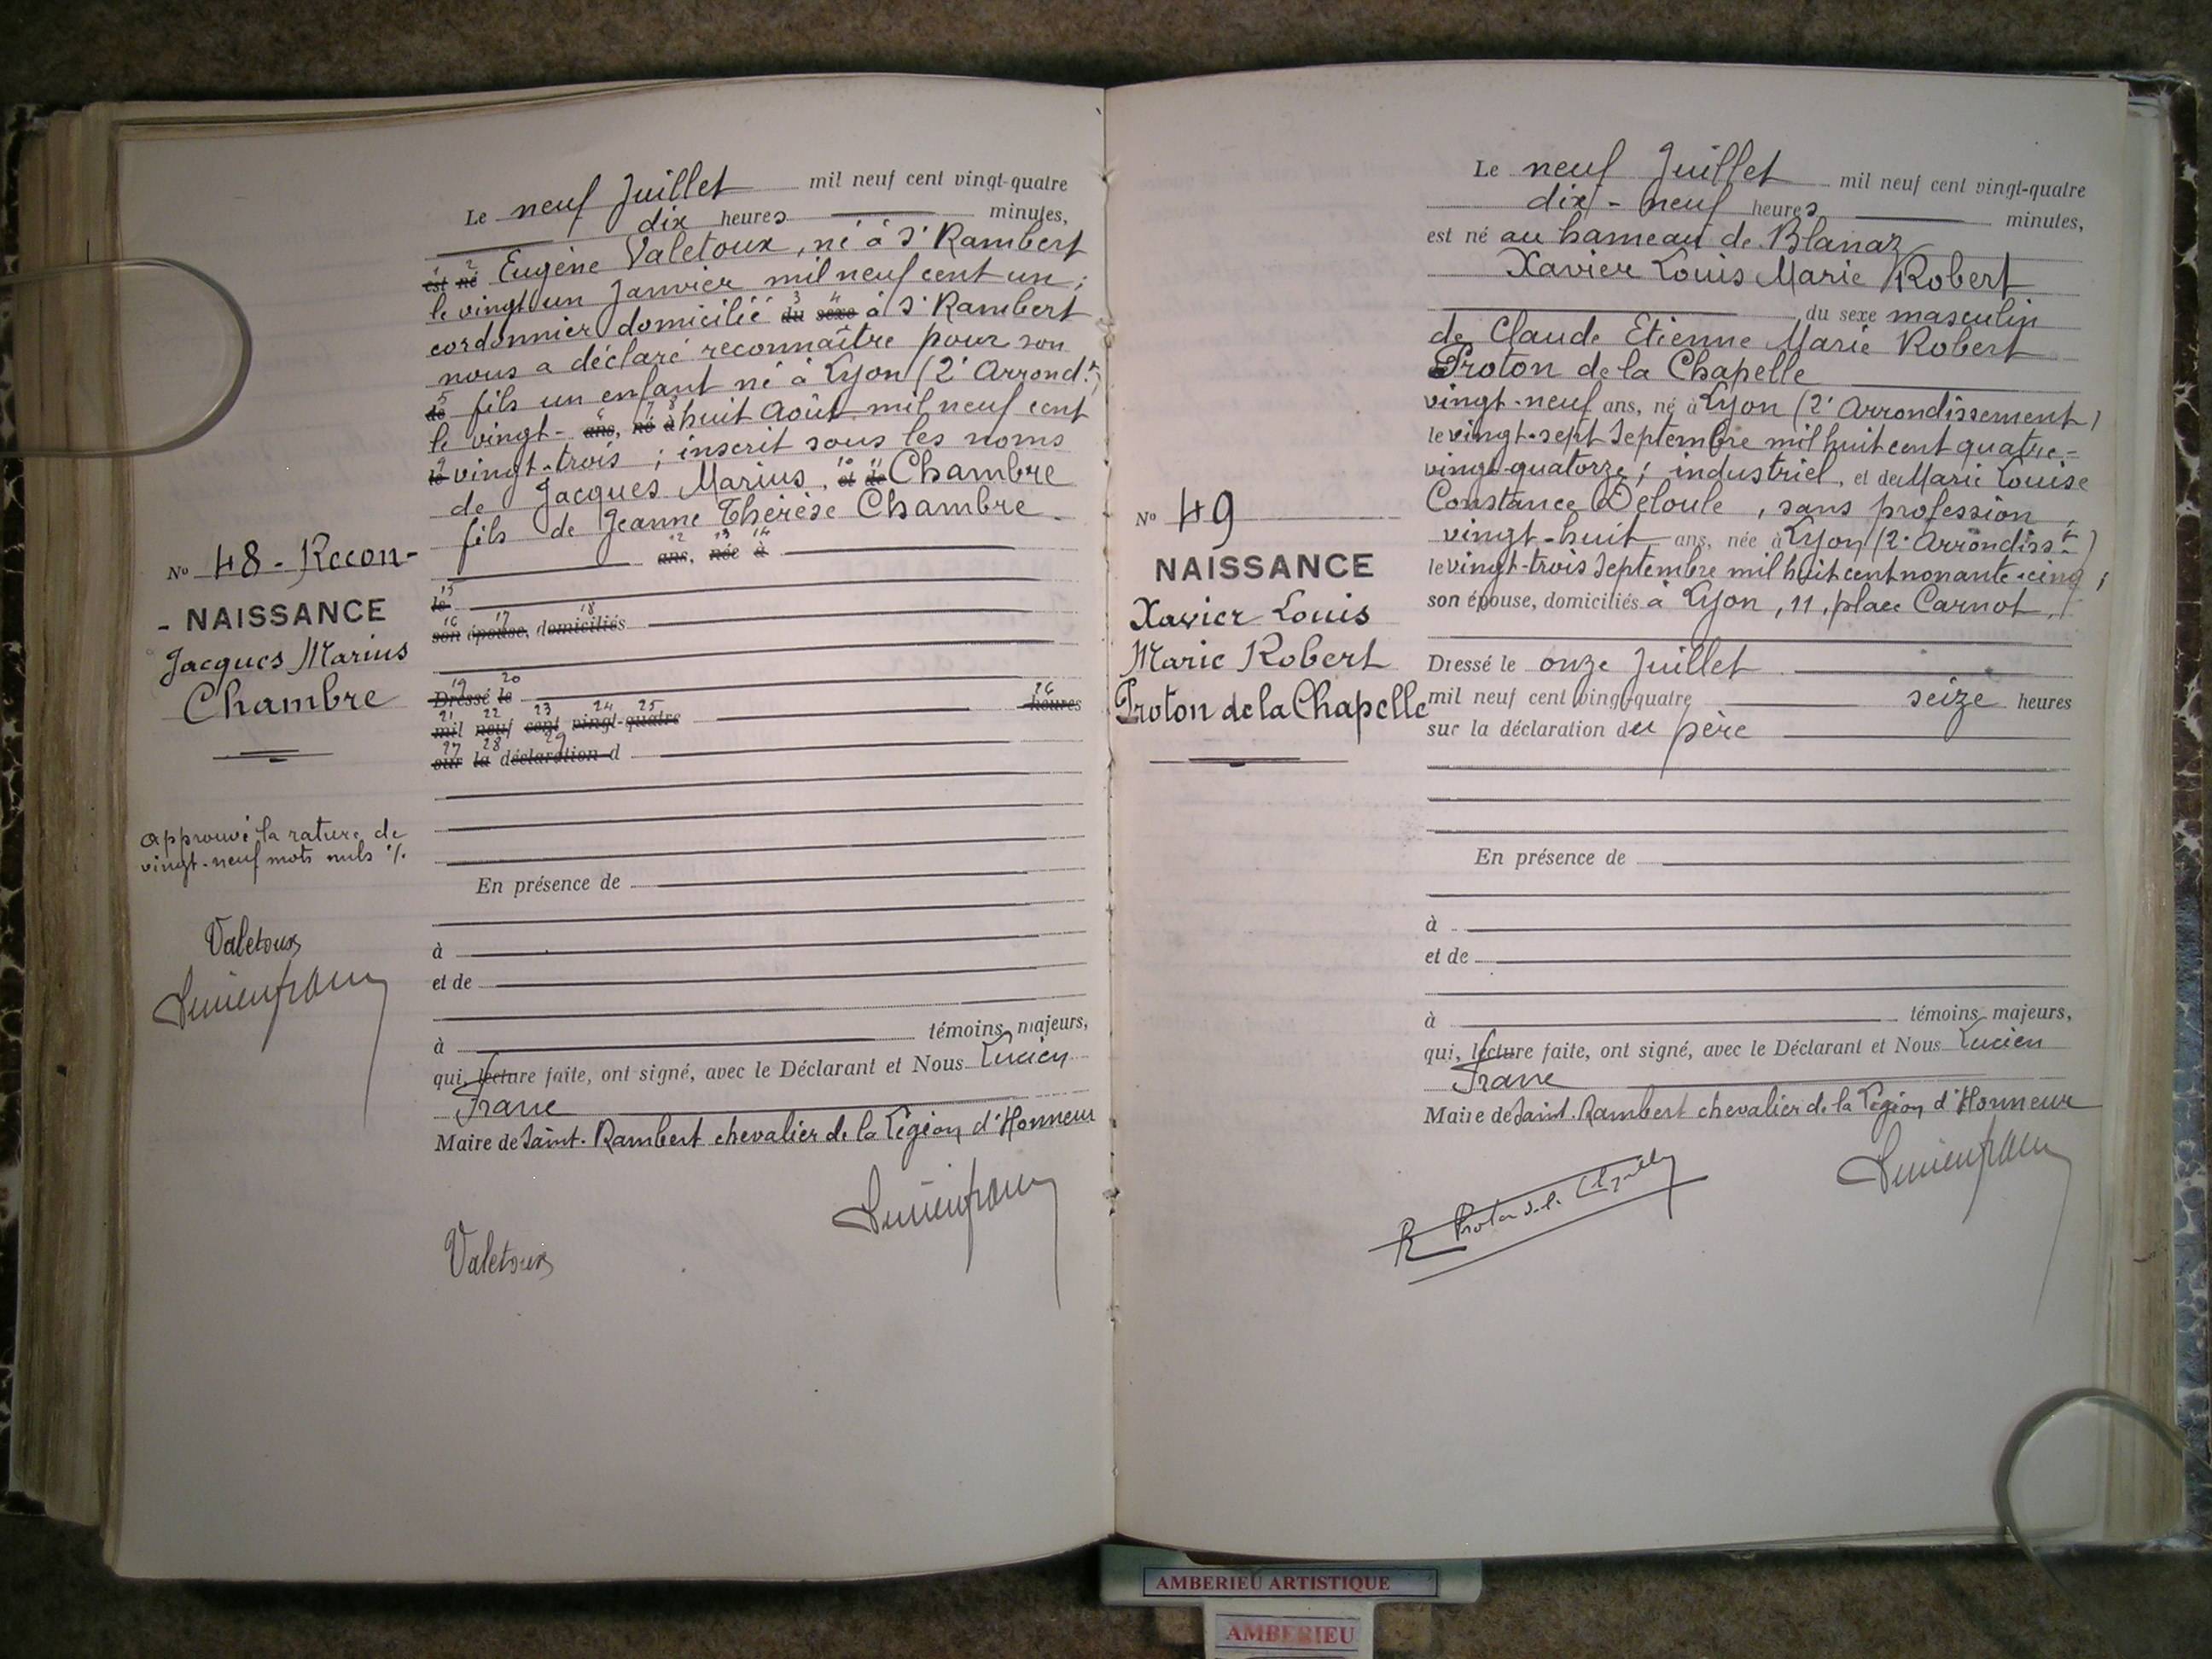 Le neuf Juillet mil neuf cent vingt-quatre
dix heures minutes,
est né Eugène Valetoux, né à St Rambert
1 2
le vingt un Janvier mil neuf cent un ;
cordonnier domicilié du sexe à St Rambert
3 4
nous a déclaré reconnaître pour son
de fils un enfant né à Lyon (2e Arrondt)
5
le vingt- ans, né à huit Août mil neuf cent
6 7 8
le vingt-trois ; inscrit sous les noms
9
de Jacques Marius, et de Chambre
10 11
fils de Jeanne Thérèse Chambre
ans, née à
12 13 14
le
15
son épouse, domiciliés
16 17 18
Dressé le
19 20
mil neuf cent vingt-quatre heures
21 22 23 24 25 26
sur la déclaration d
27 28 29
En présence de
à
et de
à témoins majeurs,
qui, lecture faite, ont signé, avec le Déclarant et Nous Lucien
Franc
Maire de Saint-Rambert chevalier de la Légion d'Honneur
Valetoux
No 48 - Recon-
- NAISSANCE
Jacques Marius
Chambre
Approuvé la rature de
vingt-neuf mots nuls ./.
Valetoux
Le neuf Juillet mil neuf cent vingt-quatre
dix-neuf heures minutes,
est né au hameau de Blanaz
Xavier Louis Marie Robert
du sexe masculin
de Claude Etienne Marie Robert
Proton de la Chapelle
vingt-neuf ans, né à Lyon (2e Arrondissement)
le vingt-sept Septembre mil huit cent quatre-
vingt-quatorze ; industriel, et de Marie Louise
Constance Deloule, sans profession,
vingt-huit ans, née à Lyon (2e Arrondisst)
le vingt-trois Septembre mil huit cent nonante-cinq ;
son épouse, domiciliés à Lyon, 11, place Carnot ./.
Dressé le onze Juillet
mil neuf cent vingt-quatre seize heures
sur la déclaration du père
En présence de
à
et de
à témoins majeurs,
qui, lecture faite, ont signé, avec le Déclarant et Nous Lucien
Franc
Maire de Saint-Rambert chevalier de la Légion d'Honneur
No 49
NAISSANCE
Xavier Louis
Marie Robert
Proton de la Chapelle
AMBERIEU ARTISTIQUE
AMBERIEU